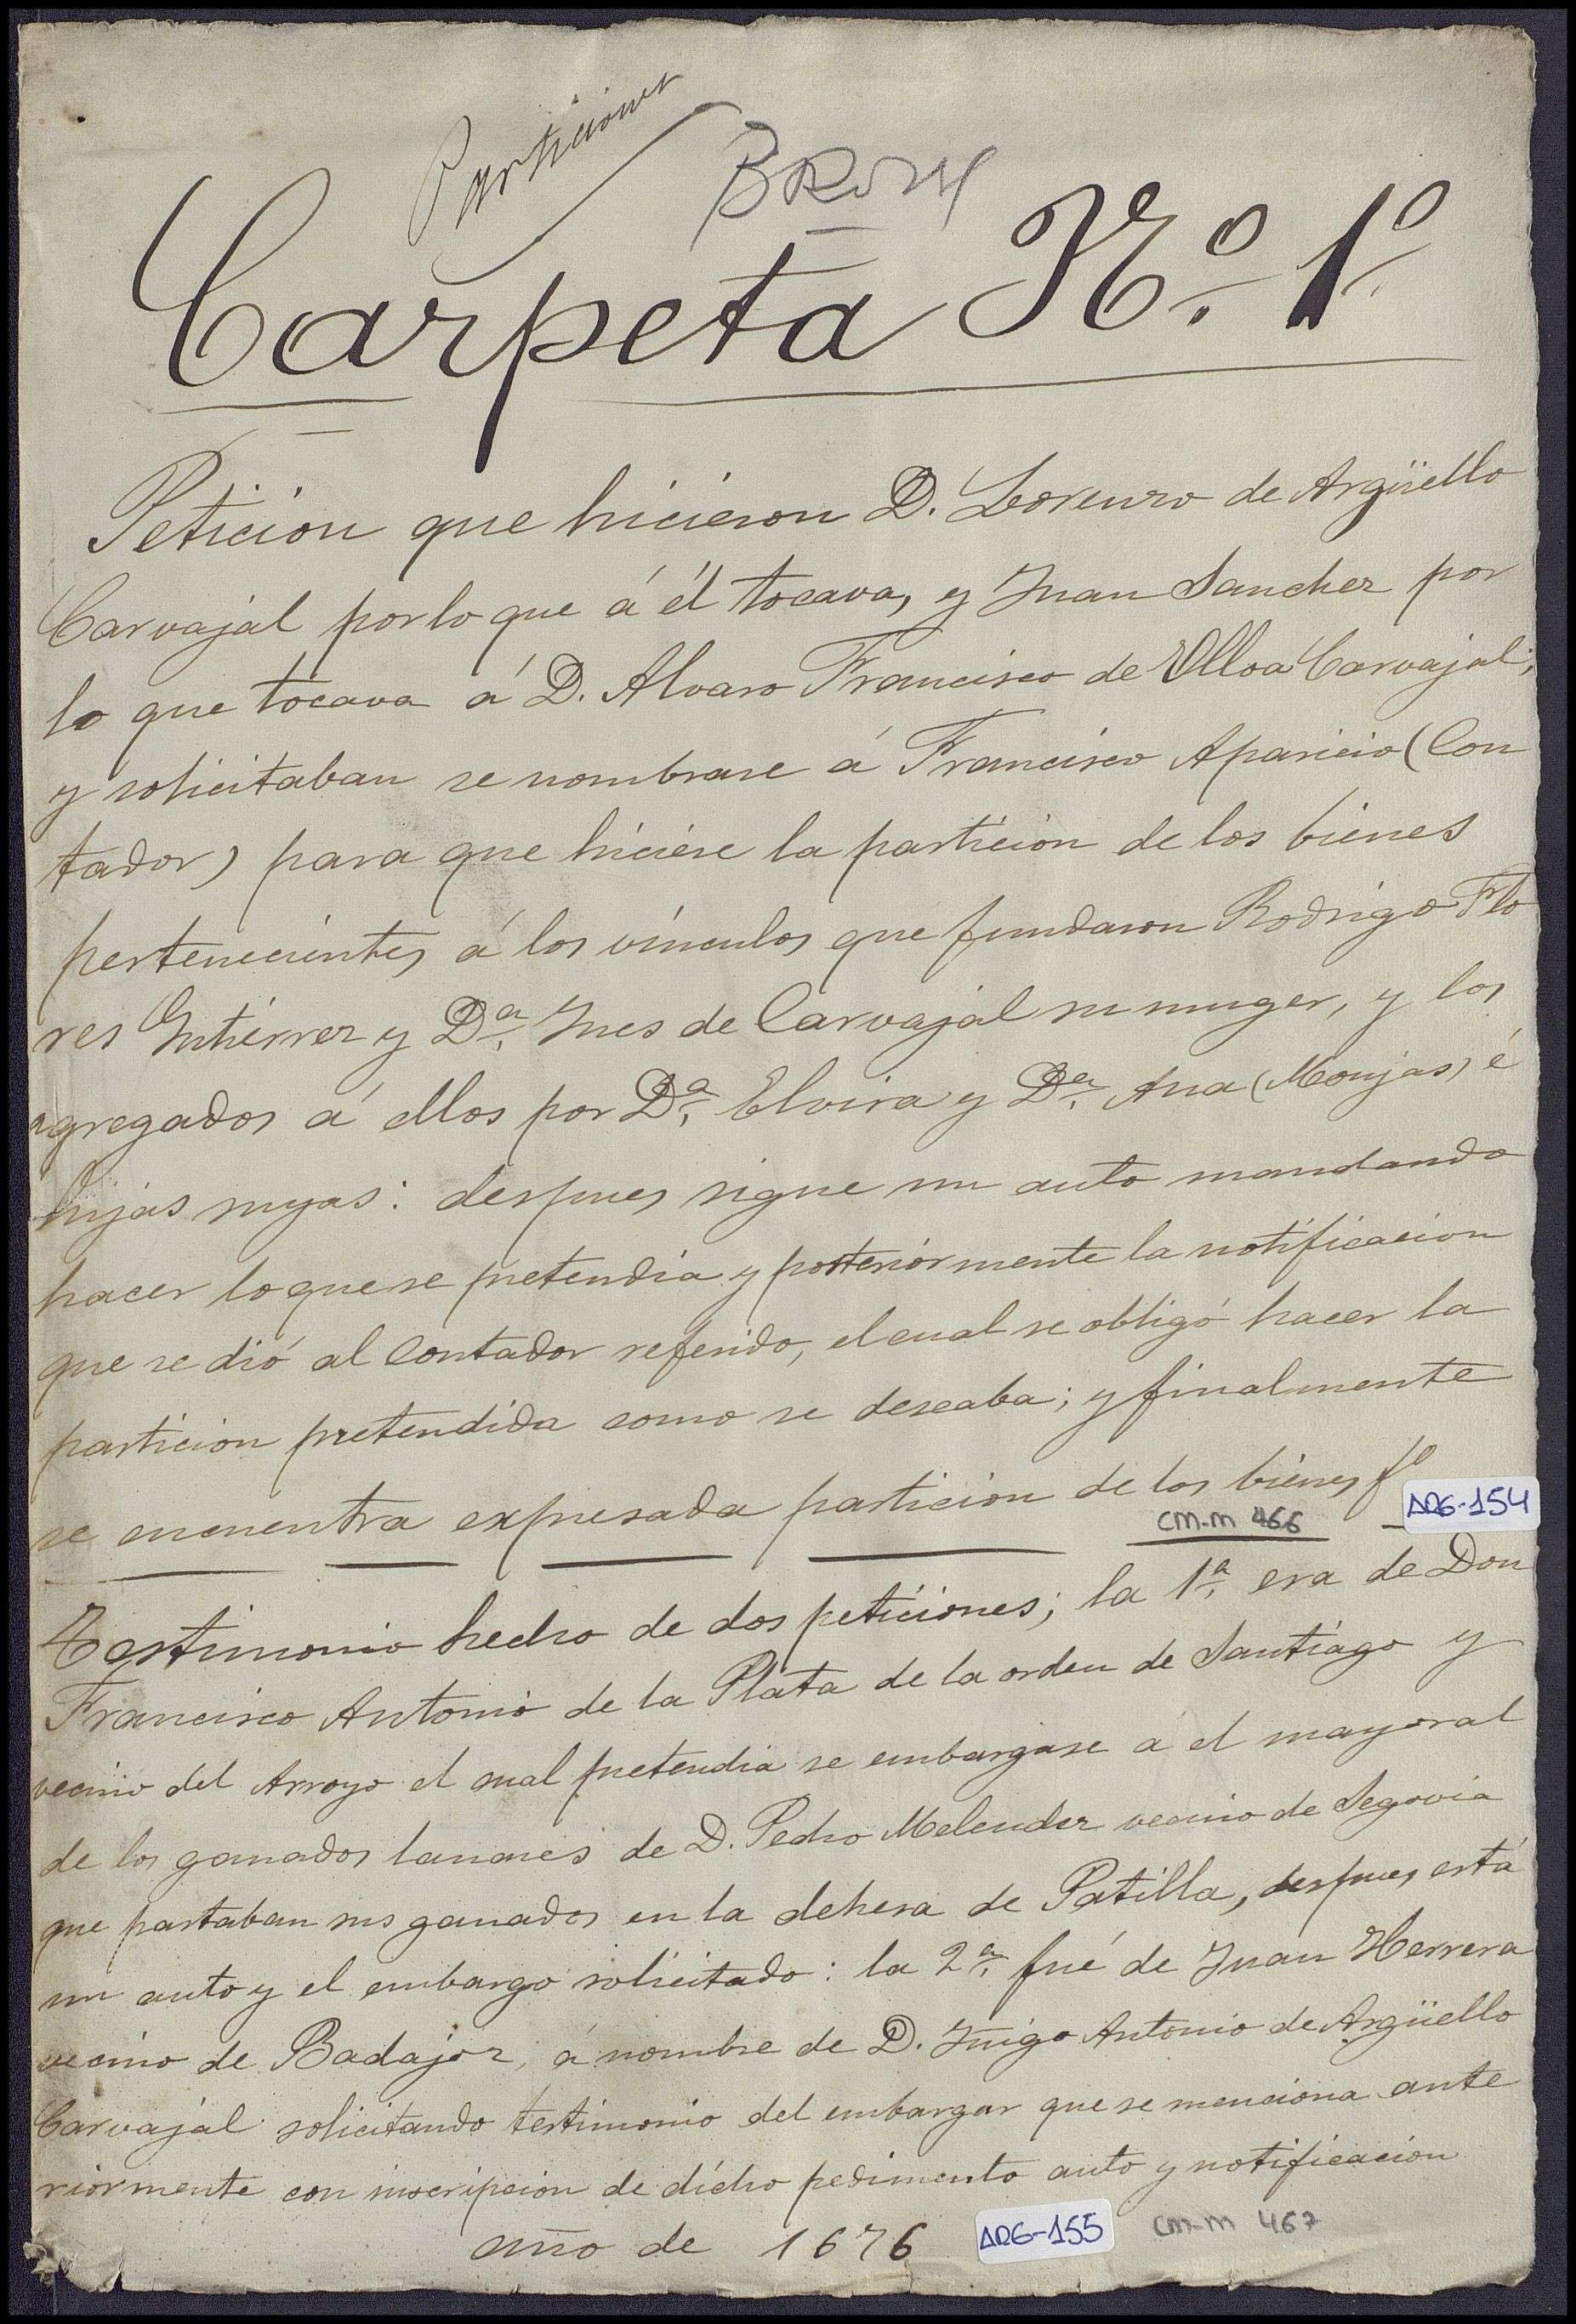 Particiones
BROM
Carpeta Nº. 1º
Petición que hicieron D. Lorenzo de Argüello
Carvajal por lo que á él tocava, y Juan Sanchez por
lo que tocava á D. Alvaro Francisco de Ulloa Carvajal;
y solicitaban se nombrase á Francisco Aparicio (Con
tador) para que hiciese la partición de los bienes
pertenecientes á los vinculos que fundaron Rodrigo Flo
res Gutierrez y Dª. Ines de Carvajal su muger, y los
agregados á ellos por Dª. Elvira y Dª. Ana (Monjas) é
hijas suyas: despues sigue un auto mandando
hacer lo que se pretendia y posteriormente la notificacion
que se dió al Contador referido, el cual se obligó hacer la
particion pretendida como se deseaba; y finalmente
se encuentra expresada particion de los bienes fº
CM-M 466 ARG-154
Testimonio hecho de dos peticiones; la 1ª. era de Don
Francisco Antonio de la Plata de la orden de Santiago y
vecino del Arroyo el cual pretendia se embargase á el mayoral
de los ganados lanares de D. Pedro Melendez vecino de Segovia
que pastaban sus ganados en la dehesa de Patilla, despues está
un auto y el embargo solicitado: la 2ª. fué de Juan Herrera
vecino de Badajoz, á nombre de D. Iñigo Antonio de Argüello
Carvajal solicitando testimonio del embargar que se menciona ante
riormente con inscripcion de dicho pedimento auto y notificacion
año de 1676 ARG-155 CM-M 467